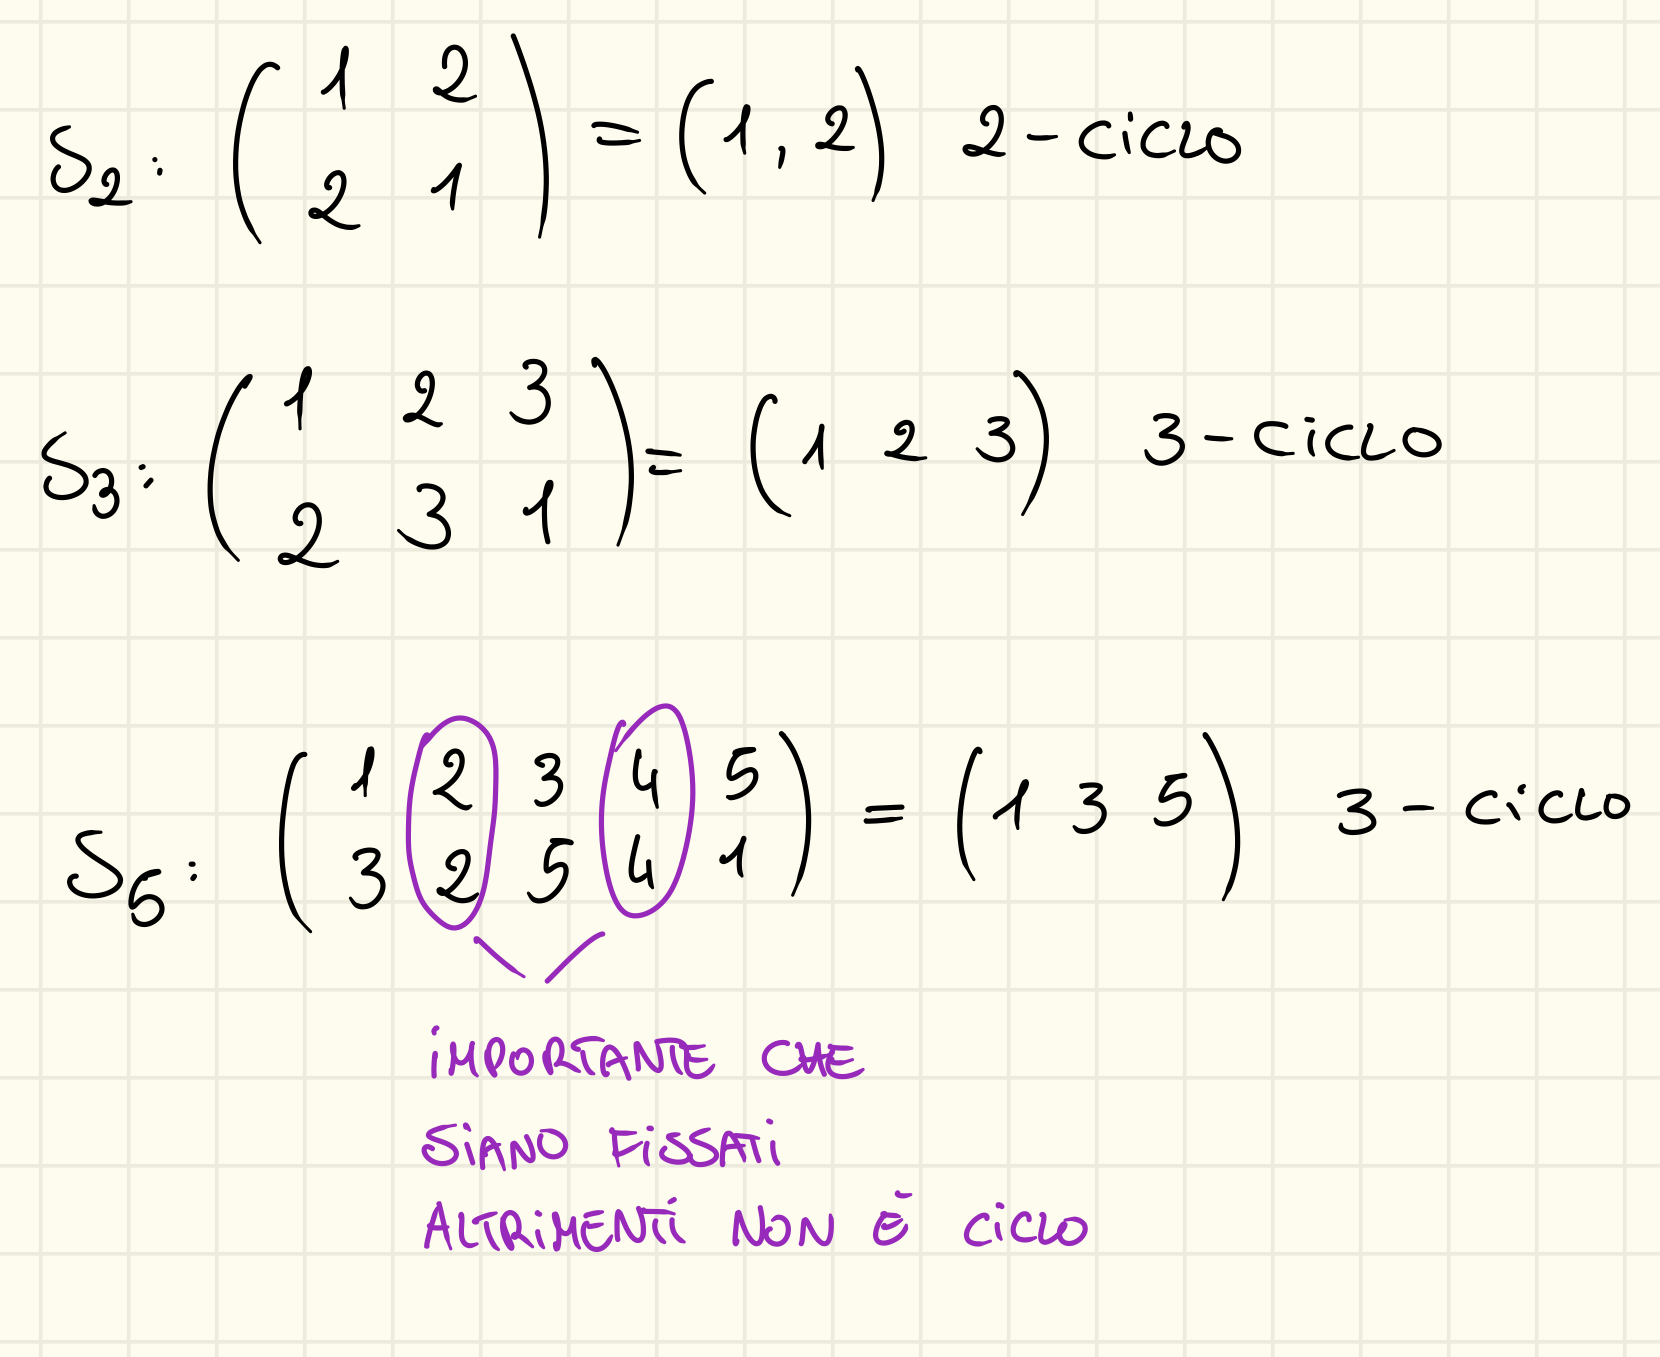 S₂: ( 1 2 / 2 1 ) = (1, 2) 2-ciclo
S₃: ( 1 2 3 / 2 3 1 ) = (1 2 3) 3-ciclo
S₅: ( 1 2 3 4 5 / 3 2 5 4 1 ) = (1 3 5) 3-ciclo
IMPORTANTE CHE
SIANO FISSATI
ALTRIMENTI NON È CICLO